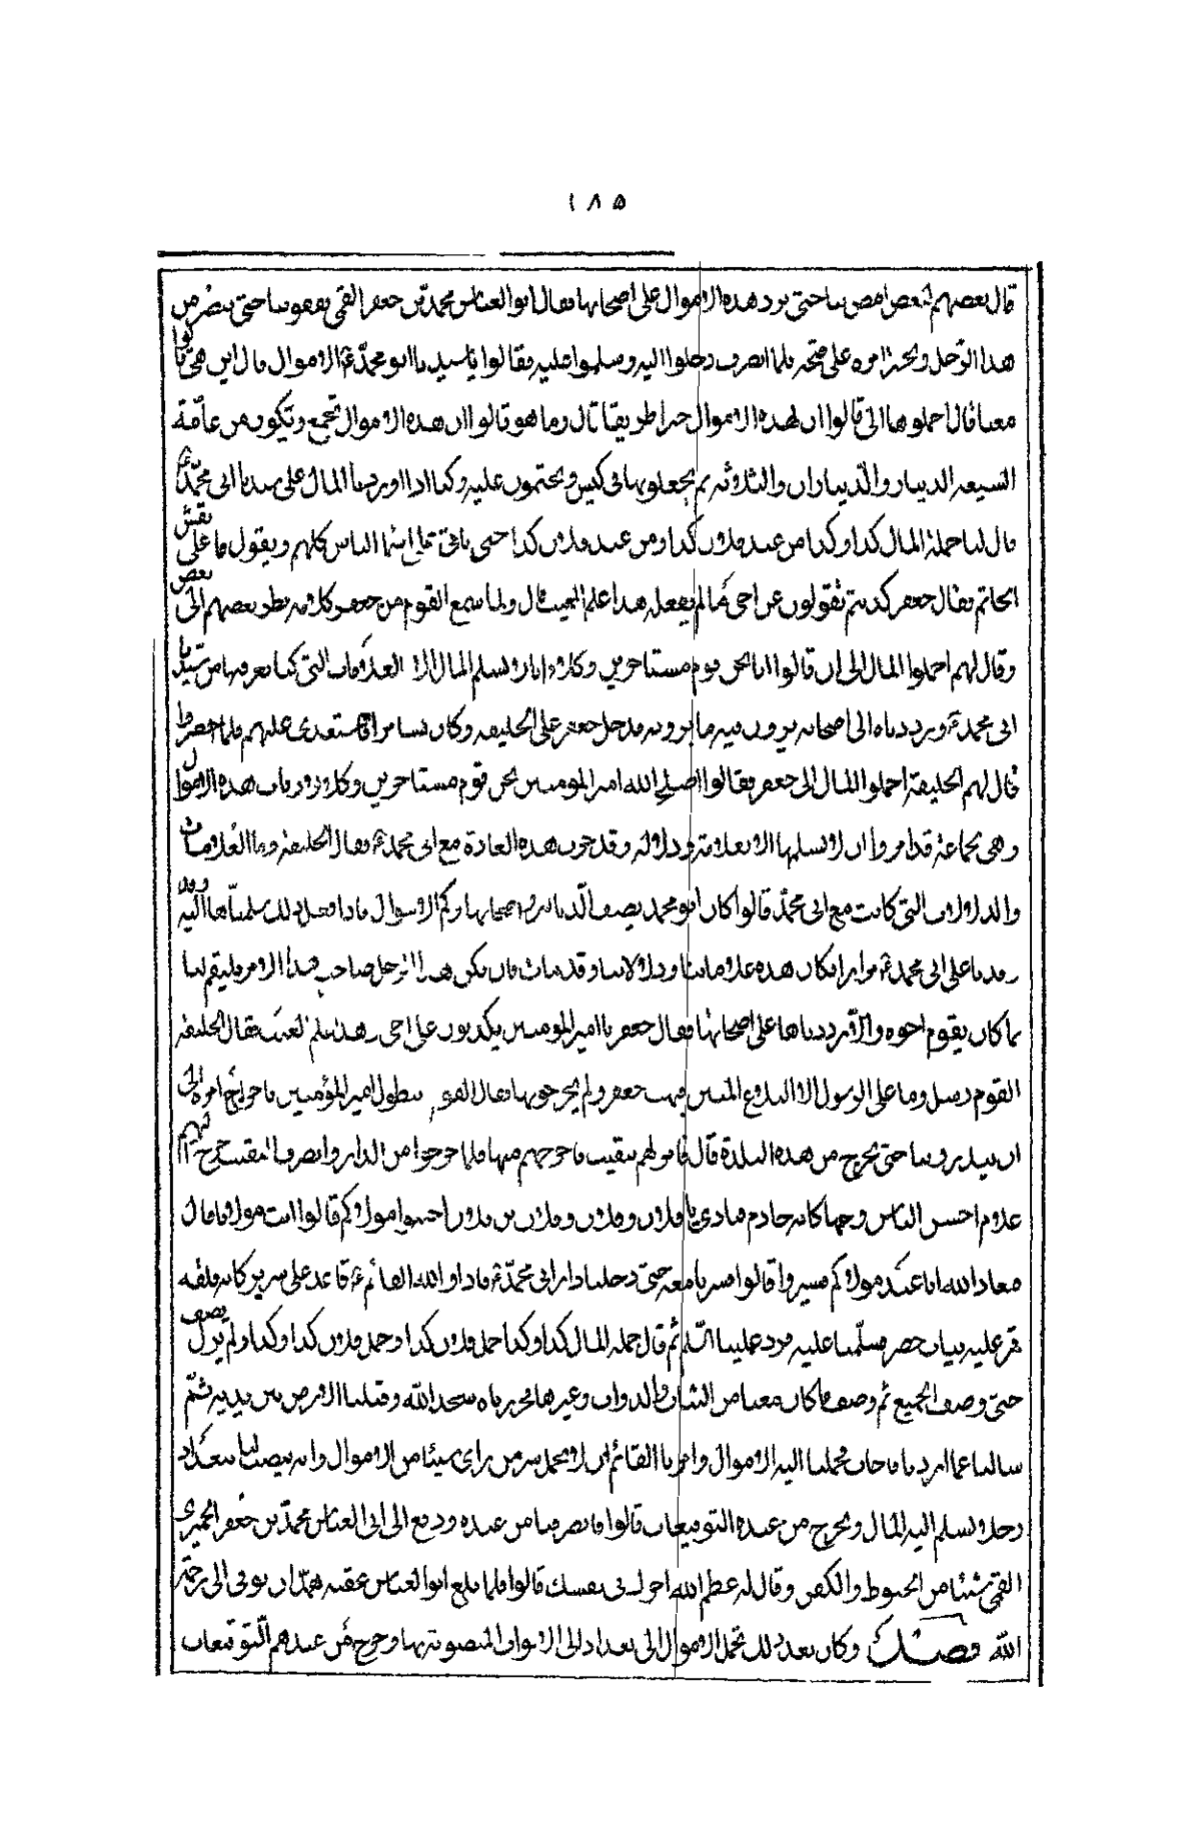 ١٨٥
قال بعضهم لبعض امض بنا حتى نرد هذه الاموال على اصحابها فقال ابو العباس محمد بن جعفر القمي قفوا بنا حتى ينصرف
هذا الرجل ونختبر امره على صحة فلما انصرف دخلوا اليه وسلموا عليه فقالوا يا سيدنا ابو محمد الاموال قال اين هي قالوا
معنا قال احملوها الى قالوا ان لهذه الاموال خبرا طريفا قال وما هو قالوا ان هذه الاموال تجمع وتكون من عامة
الشيعة الدينار والديناران والثلاثة ثم يجعلونها في كيس ويختمون عليه وكنا اذا اوردنا المال على سيدنا ابي محمد ع
قال لنا جملة المال كذا وكذا من عند فلان كذا ومن عند فلان كذا حتى ياتي على اسماء الناس كلهم ويقول ما على نقش
الخاتم فقال جعفر كذبتم تقولون على اخي ما لم يفعله هذا علم الغيب قال ولما سمع القوم من جعفر كلامه نظر بعضهم الى بعض
وقال لهم احملوا المال الى قالوا انا نحن قوم مستاجرين وكلاء لا نسلم المال الا العلامات التي كنا نعرفها من سيدنا
ابي محمد ع ويرددناه الى اصحابه يرون فيه ما يرونه فدخل جعفر على الخليفة وكان بسامرا فاستعدى عليهم فلما احضروا
قال لهم الخليفة احملوا المال الى جعفر فقالوا اصلح الله امير المومنين نحن قوم مستاجرين وكلاء ارباب هذه الاموال
وهي لجماعة قد امروا ان لا نسلمها الا بعلامة ودلالة وقد جرت هذه العادة مع ابي محمد ع فقال الخليفة وما العلامات
والدلالات التي كانت مع ابي محمد قالوا كان ابو محمد يصف الدنانير واصحابها وكم الاموال فاذا فعل ذلك سلمناها اليه وقد
وفدنا على ابي محمد ع مرارا فكان هذه علاماتنا ودلالاتنا وقد مات فان يكن هذا الرجل صاحب هذا الامر فليقم لنا
بما كان يقوم اخوه والا رددناها على اصحابها فقال جعفر يا امير المومنين يكذبون على اخي وهذا علم الغيب فقال الخليفة
القوم رسل وما على الرسول الا البلاغ المبين فبهت جعفر ولم يحر جوابا فقال القوم يتطول امير المؤمنين باخراج امره الى
ان يبدرونا حتى نخرج من هذه البلدة قال فامر لهم بنقيب فاخرجهم منها فلما خرجوا من الدار وانصرف النقيب خرج اليهم
غلام احسن الناس وجها كانه خادم فنادى يا فلان وفلان وفلان بن فلان اجيبوا مولاكم قالوا انت مولانا قال
معاذ الله انا عبد مولاكم فسيروا قالوا فسرنا معه حتى دخلنا دار ابي محمد ع فاذا والله القائم ع قاعد على سرير كانه فلقة
قمر عليه ثياب خضر فسلمنا عليه فرد علينا السلام ثم قال جملة المال كذا وكذا حمل فلان كذا وحمل فلان كذا وكذا ولم يزل يصف
حتى وصف الجميع ثم وصف ما كان معنا من الثياب والدواب وغيرها فخررناه سجدا لله وقبلنا الارض بين يديه ثم
سالنا عما اردنا فاجاب فحملنا اليه الاموال وامرنا القائم ان لا نحمل سر من راى شيئا من الاموال وانه ينصب لنا ببغداد
رجلا نسلم اليه المال ويخرج من عنده التوقيعات قالوا فانصرفنا من عنده ودفع الى ابي العباس محمد بن جعفر الحميري
القمي شيئا من الحنوط والكفن وقال له عظم الله اجرك في نفسك قالوا فلما بلغ ابو العباس عقبة همدان توفي الى رحمة
الله فصل وكان بعد ذلك تحمل الاموال الى بغداد الى الابواب المنصوبة بها وخرج من عندهم التوقيعات